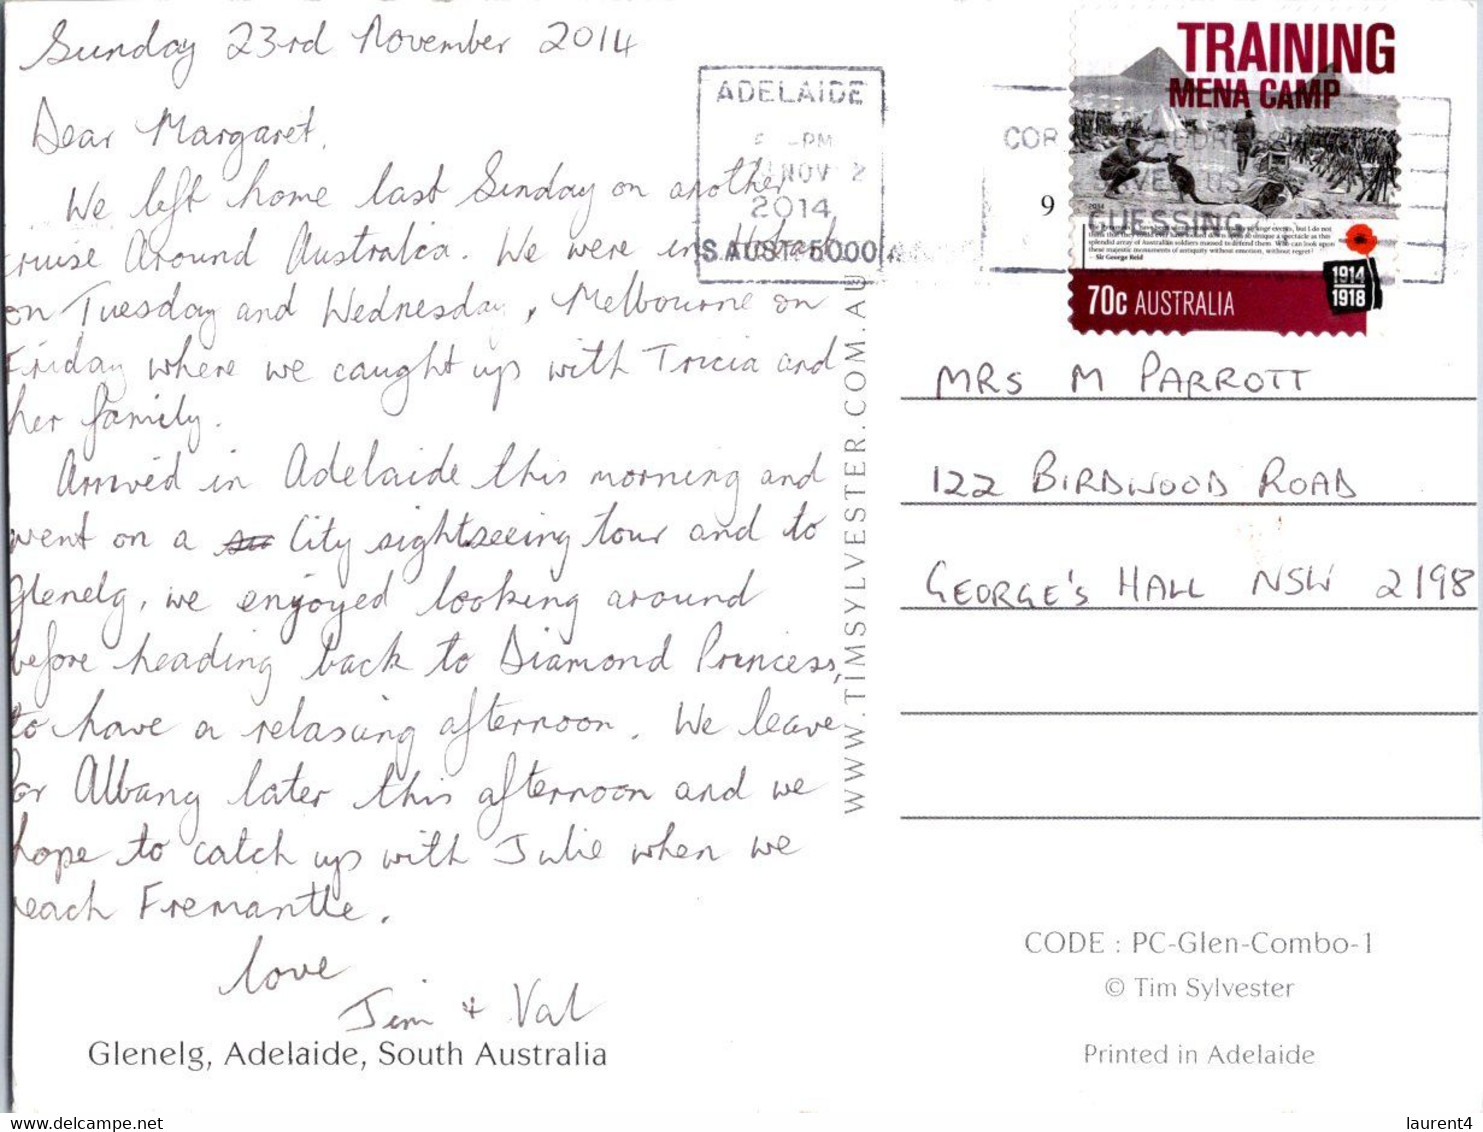 Sunday 23rd November 2014
Dear Margaret,
We left home last Sunday on another
cruise Around Australia. We were in Hobart
on Tuesday and Wednesday, Melbourne on
Friday where we caught up with Tricia and
her family.
Arrived in Adelaide this morning and
went on a City sightseeing tour and to
Glenelg, we enjoyed looking around
before heading back to Diamond Princess,
to have a relaxing afternoon. We leave
for Albany later this afternoon and we
hope to catch up with Julie when we
reach Fremantle.
love
Jim + Val
Glenelg, Adelaide, South Australia
WWW.TIMSYLVESTER.COM.AU
ADELAIDE
PM
NOV 2
2014
S AUST 5000
COR
GUESSING
9
TRAINING
MENA CAMP
2014
splendid array of Australian soldiers massed to defend them. Who can look upon
these majestic monuments of antiquity without emotion, without regret?
– Sir George Reid
1914
1918
70c AUSTRALIA
MRS M PARROTT
122 BIRDWOOD ROAD
GEORGE'S HALL NSW 2198
CODE : PC-Glen-Combo-1
© Tim Sylvester
Printed in Adelaide
www.delcampe.net
laurent4